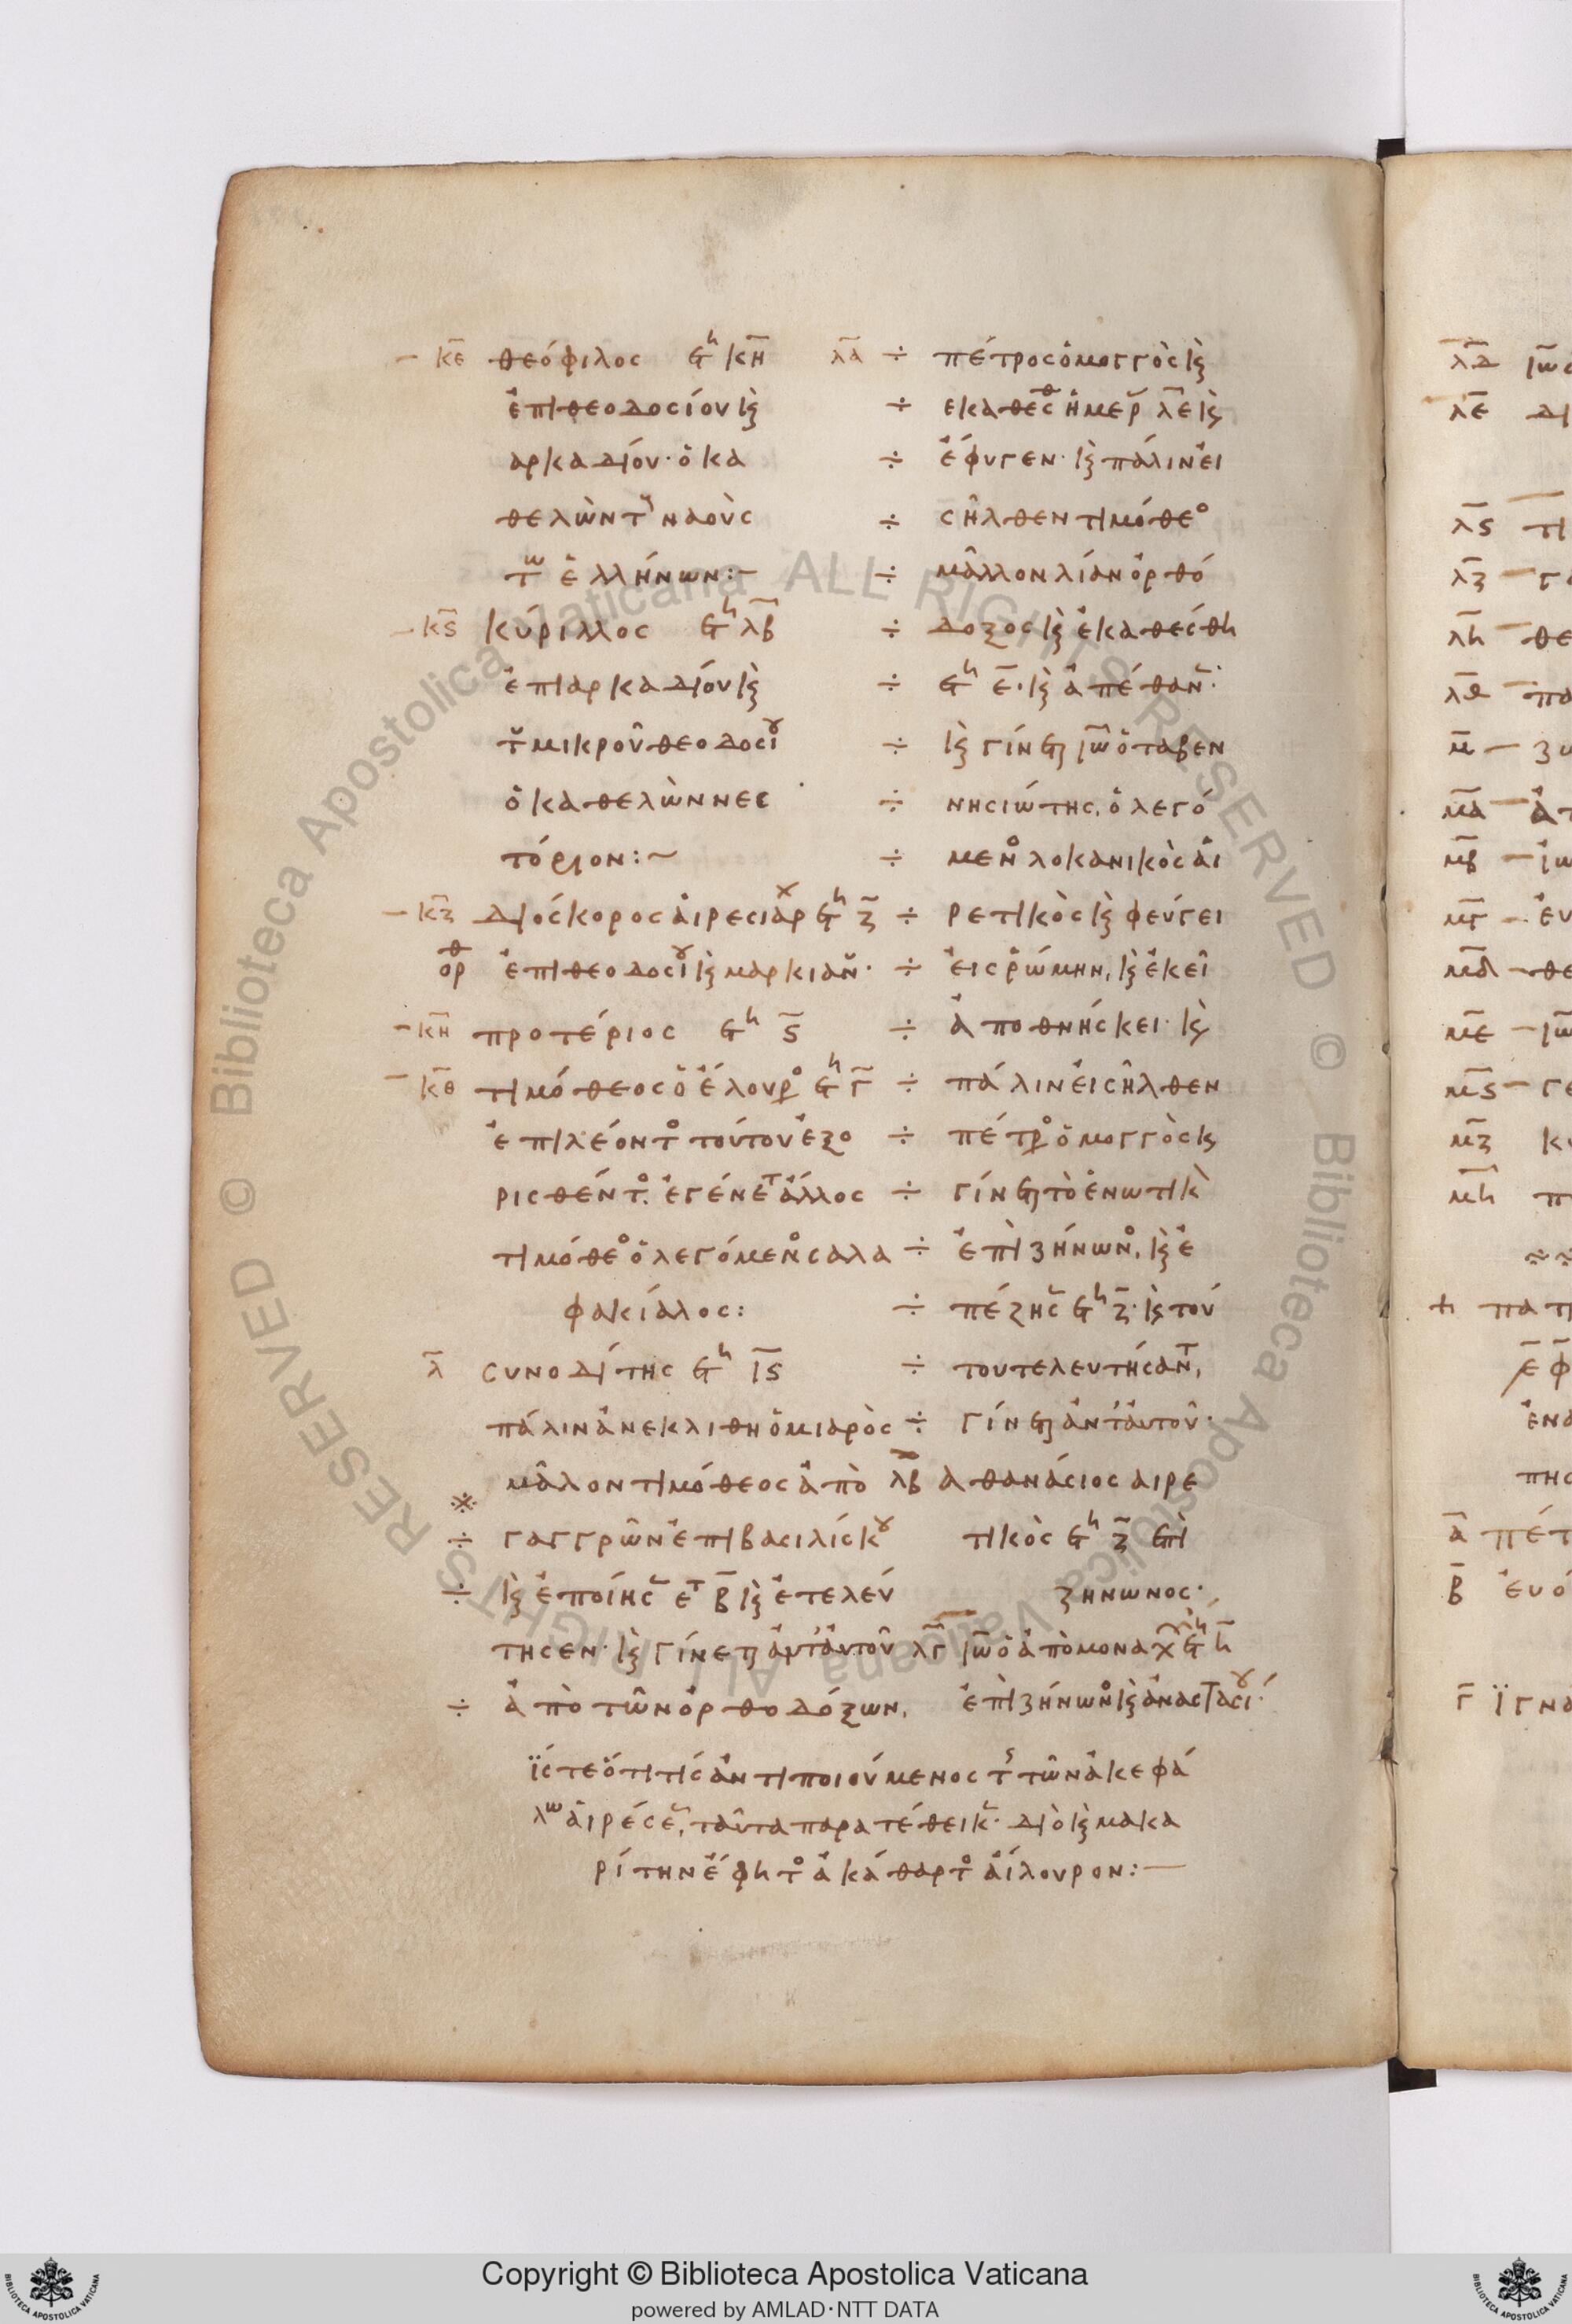 κε θεόφιλος ἔτη κη
ἐπὶ θεοδοσίου κ(αὶ)
αρκαδίου· ὁ κα
θελὼν τ(οὺς) ναοὺς
τῶ(ν) ἑλλήνων:~
κϛ κύριλλος ἔτη λβ
ἐπὶ αρκαδίου κ(αὶ)
τ(οῦ) μικροῦ θεοδοσίου
ὁ καθελὼν νεσ
τόριον:~
κζ διόσκορος αἱρεσιάρχ ἔτη ζ
ὀρθ ἐπὶ θεοδοσίου κ(αὶ) μαρκιαν·
κη προτέριος ἔτη ϛ
κθ τιμόθεος ὁ ἐλουρο ἔτη γ
ἐπὶ λέοντο τούτου ἐξο
ρισθέντο. ἐγένετ ἄλλος
τιμόθεο ὁ λεγόμενο σαλα
φακίαλος:
λ συνοδίτης ἔτη ιϛ
πάλιν ἀνεκλιθη ὁ μιαρὸς
μᾶλον τιμόθεος ἀπὸ
γαγγρῶν ἐπὶ βασιλίσκου
κ(αὶ) ἐποίησ ετ β κ(αὶ) ἐτελεύ
τησεν· κ(αὶ) γίνεται ἀντ' ἀυτοῦ
ἀπὸ τῶν ὀρθοδόξων,
λα πέτρος ὁ μογγὸς κ(αὶ)
εκαθέσθ ἡμερ λε κ(αὶ)
ἔφυγεν· κ(αὶ) πάλιν ἐι
σῆλθεν τιμόθεο
μᾶλλον λίαν ὀρθό
δοξος κ(αὶ) ἐκαθέσθη
ἔτη ε· κ(αὶ) ἀπέθαν·
κ(αὶ) γίνεται ἰω ὁ ταβεν
νησιώτης, ὁ λεγό
μενο λοκανικὸς αἱ
ρετικὸς κ(αὶ) φεύγει
ἐις ῥώμην, κ(αὶ) ἐκεῖ
ἀποθνήσκει· κ(αὶ)
πάλιν ἐισῆλθεν
πέτρο ὁ μογγὸς κ(αὶ)
γίνεται τὸ ἑνωτικὸ
ἐπὶ ζήνωνο, κ(αὶ) ἐ
πέζησ ἔτη ζ· κ(αὶ) τού
του τελευτήσαντ,
γίνεται ἀντ' ἀυτοῦ·
λβ αθανάσιος αιρε
τικὸς ἔτη ζ ἐπὶ
ζηνωνος·
λγ ἰω ὁ ἀπὸ μοναχ ἔτη η
ἐπὶ ζήνωνο κ(αὶ) ἀναστασίου·
ἴστε ὅτι τίς ἀντιποιούμενος τῆς τῶν ἀκεφά
λω αἱρέσε, ταῦτα παρατέθεικ· διὸ κ(αὶ) μακα
ρίτην ἔφη το ἀκάθαρτο ἀίλουρον:~
λδ
λε
λϛ
λζ
λη
λθ
μ
μα
μβ
μγ
μδ
με
μϛ
μζ
μη
α
β
γ